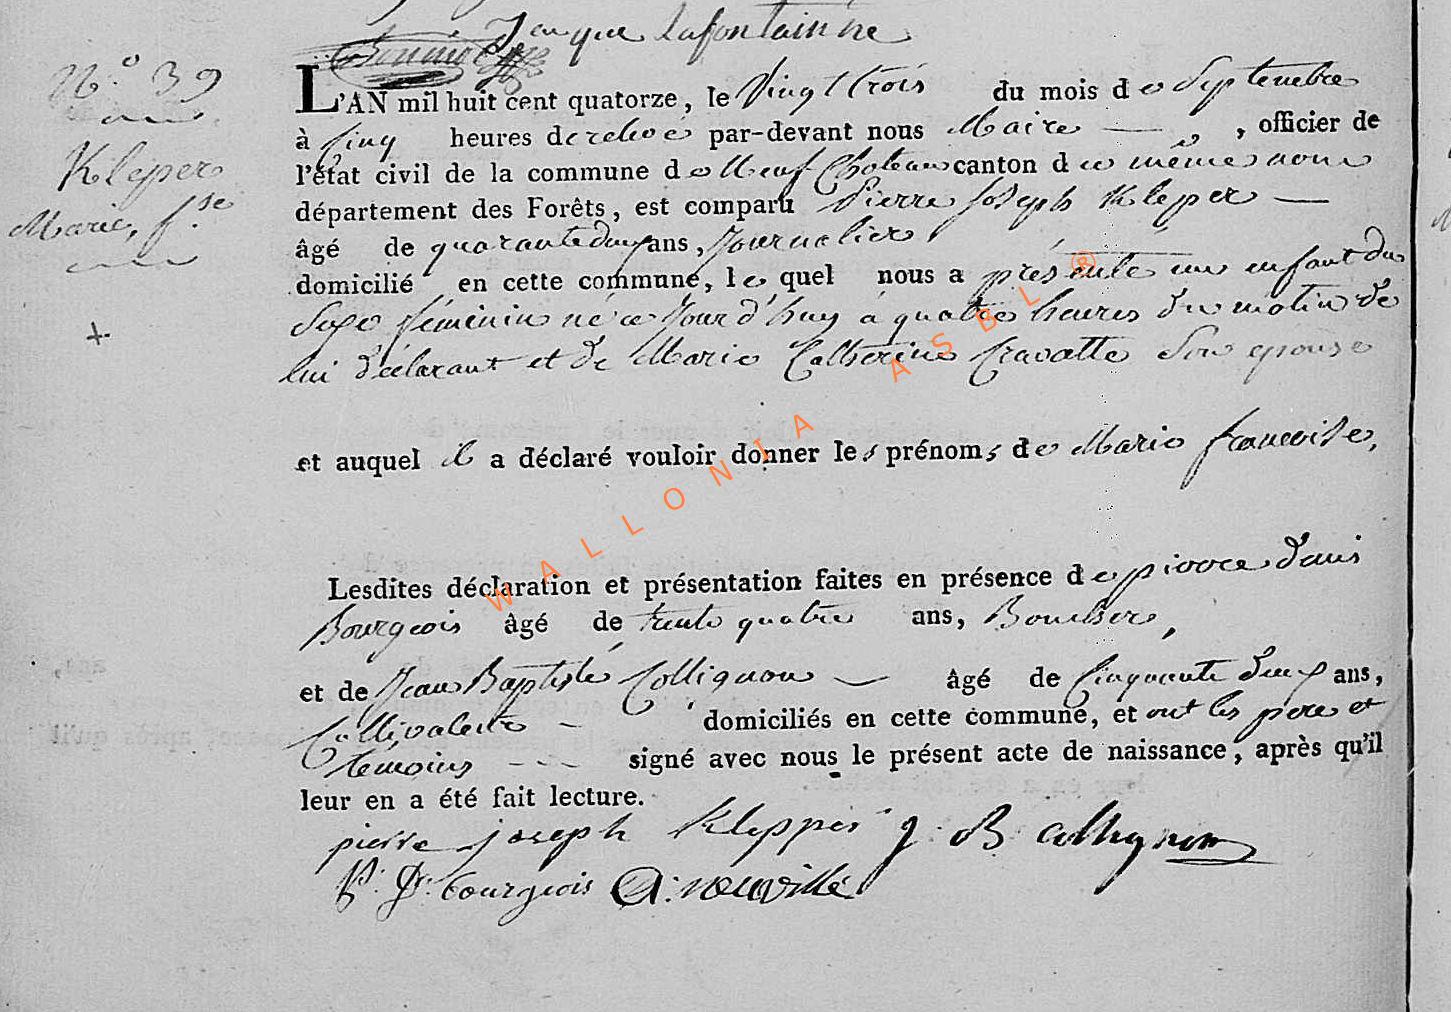 Jacque Lafontainne
N.º 39
Kleper
Marie, f.se
L'AN mil huit cent quatorze, le Vingt trois du mois de Septembre
à Cinq heures de relevé par-devant nous Maire — , officier de
l'état civil de la commune de Neufchateau canton du même nom
département des Forêts, est comparu Pierre Joseph Kleper —
âgé de quarante deux ans, Journalier
domicilié en cette commune, le quel nous a présenté un enfant du
Sexe féminin né ce Jour d'huy à quatre heures du matin de
lui déclarant et de Marie Catherine Cravatte Son epouse
et auquel il a déclaré vouloir donner les prénoms de Marie francoise,
Lesdites déclaration et présentation faites en présence de pierre Denis
Bourgeois âgé de trente quatre ans, Boucher,
et de Jean Baptiste Collignon — âgé de Cinquante deux ans,
Cultivateur - domiciliés en cette commune, et ont les pere et
temoins --- signé avec nous le présent acte de naissance, après qu'il
leur en a été fait lecture.
pierre joseph Klepper J: B collignon
P: D: bourgeois A: neuville
WALLONIA ASBL ®